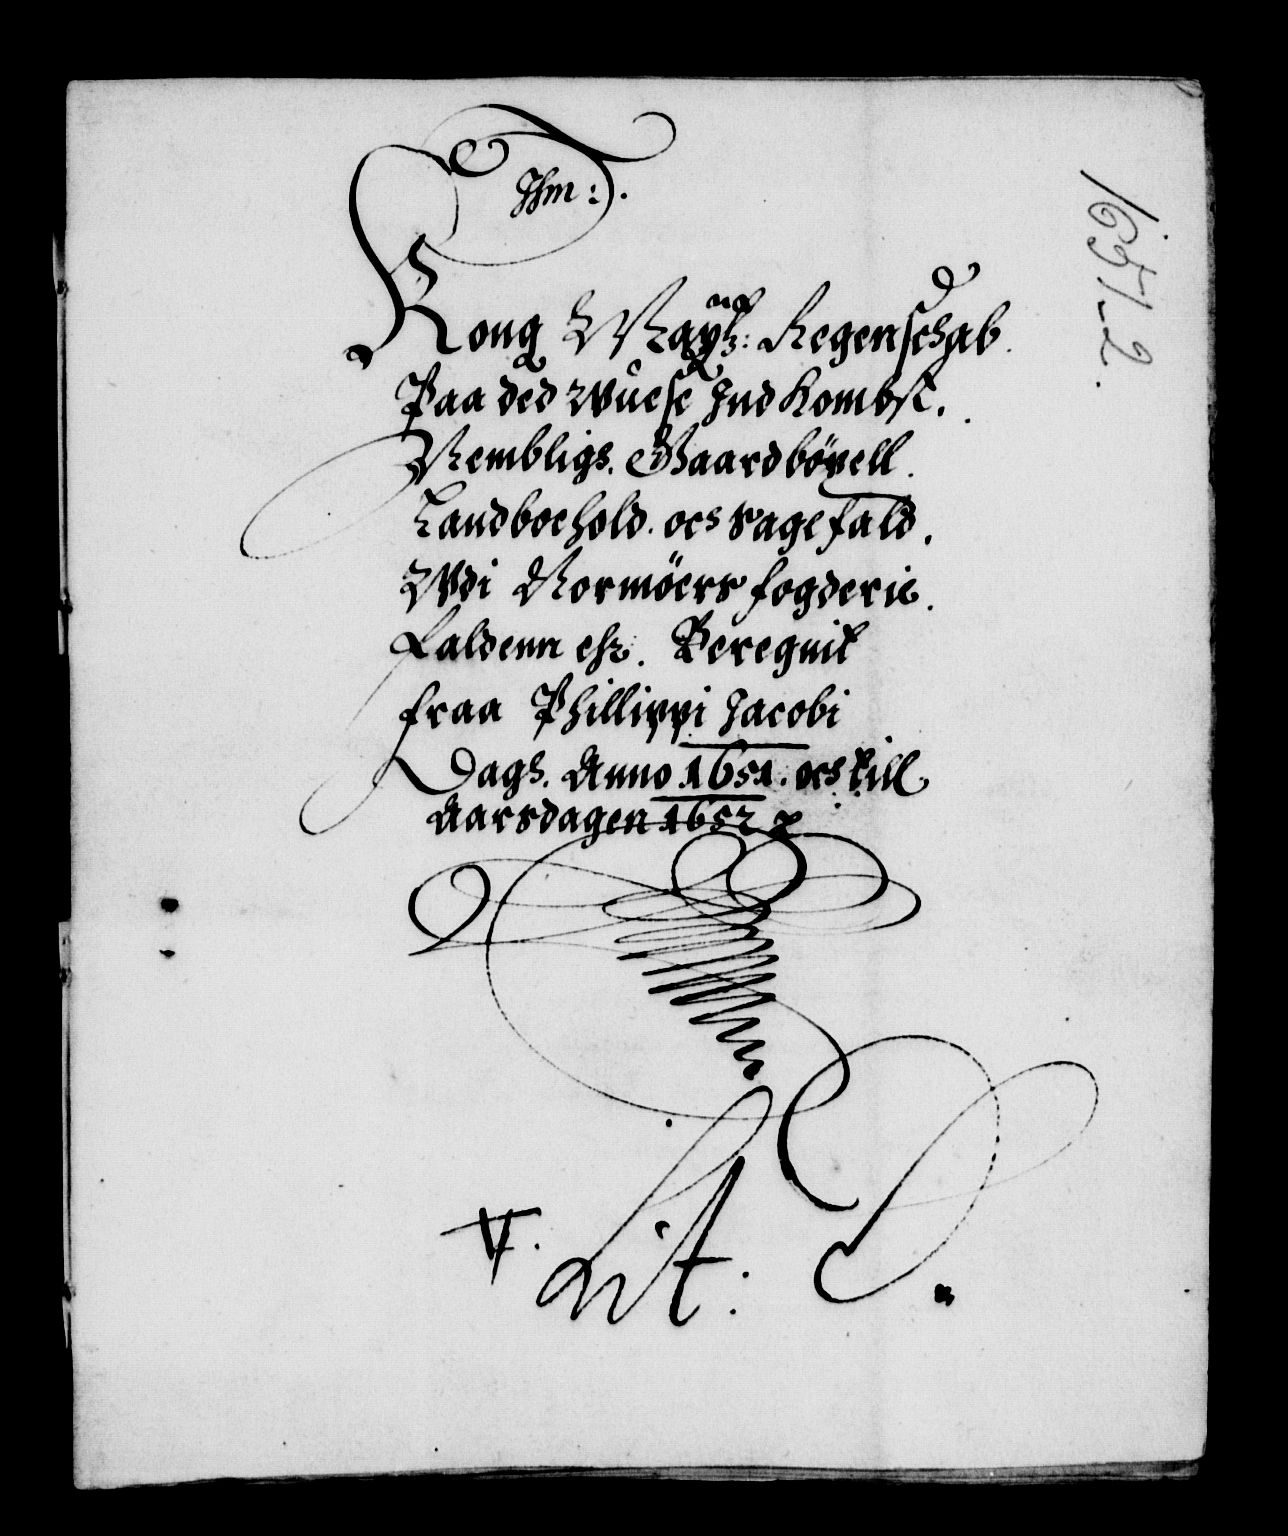 Jhm:
Kong Maytz: Regenschab
Paa ded Wuese Indkombst.
Nembligs. Gaardböxell.
Landboehold. och sagefald.
Wdi Normöers fogderie.
Faldenn ehr. Beregnit
fraa Phillippi Jacobi
Dagh. Anno 1651. och till
Aarsdagen 1652
V. Lit: D.
1651-2.